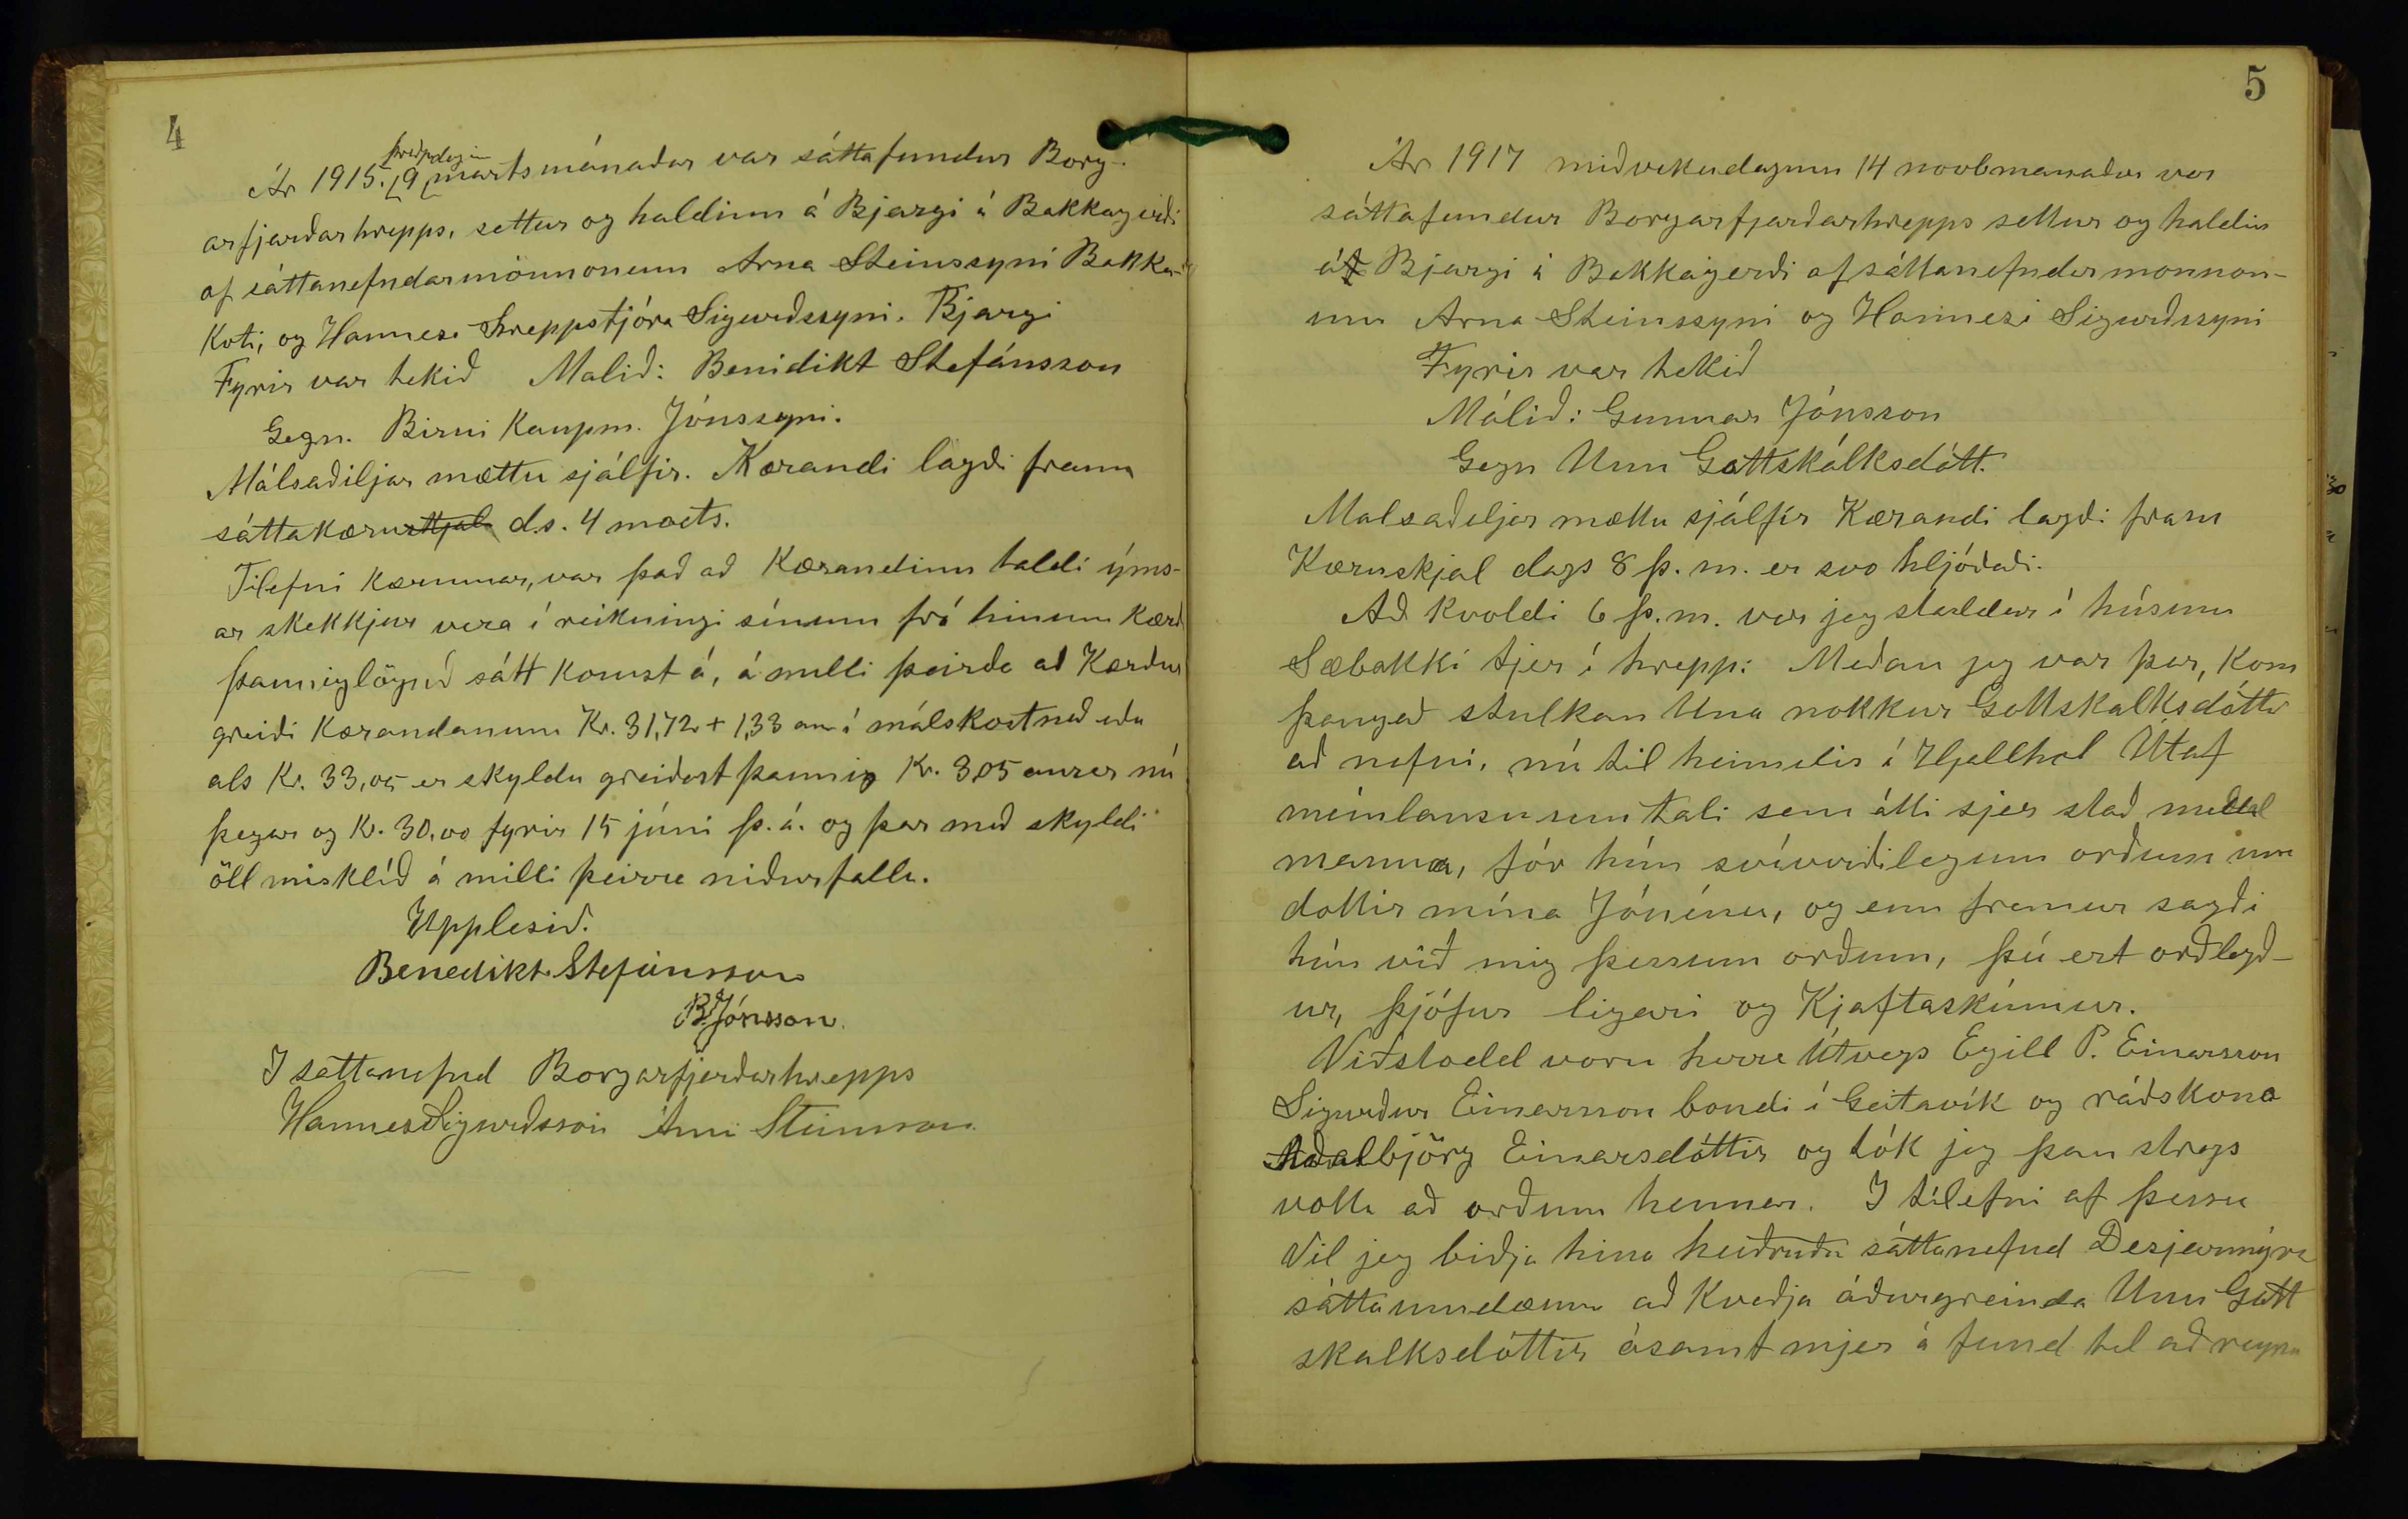 4
Ár 1915. þriðjudaginn 9 martsmánaðar var sáttafundur Borg-
arfjarðarhrepps, settur og haldinn á Bjargi á Bakkagerði
af sáttanefndarmönnonum Arna Steinssyni Bakka-
koti, og Hannesi Hreppstjóra Sigurðssyni. Bjargi
Fyrir var tekið Malið: Benidikt Stefánsson
Gegn. Birni Kaupm. Jónssyni.
Málsaðiljar mættu sjálfir. Kærandi lagði fram
sáttakæru d.s. 4 marts.
Tilefni kærunnar, var það að Kærandinn taldi ýms-
ar skekkjur vera í reikningi sínum frá hinum kærð
þannig löguð sátt komst á, á milli þeirra að Kærður
greiði Kærandanum Kr. 31,72 + 1,33 au í málskostnað eða
als Kr. 33,05 er skyldu greiðast þannig Kr. 3,05 aurar nú
þegar og Kr. 30,00 fyrir 15 júni þ.á. og þar með skyldi
öll misklíð á milli þeirra niðurfalla.
Upplesið.
Benedikt Stefánsson
B Jónsson.
I sattanefnd Borgarfjarðarhrepps
Hannes Sigurðsson Arni Steinsson
5
Ár 1917 miðvikudaginn 14 novbmanaðar var
sáttafundur Borgarfjarðarhrepps settur og haldin
á Bjargi á Bakkagerði af sáttanefndarmonnon-
um Arna Steinssyni og Hannesi Sigurðssyni
Fyrir var tekið
Málið: Gunnar Jónsson
Gegn Unu Gottskálksdótt.
Malsaðiljar mættu sjálfir Kærandi lagði fram
Kæruskjal dags 8 þ.m. er svo hljóðaði.
Að kvoldi 6 þ.m. var jeg staddur í húsinu
Sæbakki hjer í hrepp: Meðan jeg var þar, kom
þangað stulkan Una nokkur Gottskalksdóttir
að nefni, nú til heimilis í Hjallhol Útaf
meinlausu um tali sem átti sjer stað meðal
manna, fór hún svívirðilegum orðum um
dottir mína Jónínu, og enn fremur sagði
hún við mig þessum orðum, þú ert orðlagð-
ur, þjófur ligari og Kjaftaskúmur.
Viðstodd voru herra Útvegs Egill P. Einarsson
Sigurður Einarsson bondi í Geitavík og ráðskona
Aðalbjörg Einarsdóttir og tók jeg þau strags
votta að orðum hennar. I tilefni af þessu
Vil jeg biðja hina heiðruðu sáttanefnd Desjarmýra
sáttaumdæmi að Kveðja áðurgreinda Unu Gott
skalksdóttir ásamt mjer á fund til að reyna